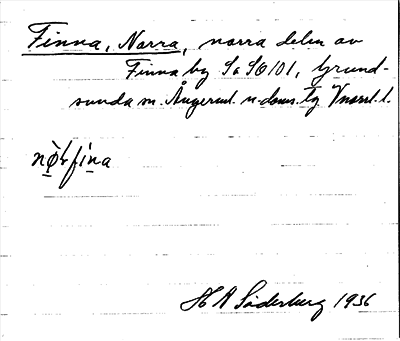 Finna, Norra, norra delen av
Finna by SäSO101, Grund-
sunda sn. Ångerml. n. doms. tg Vnorrl. l.
nò̱rfi̱na
H A Söderberg 1936